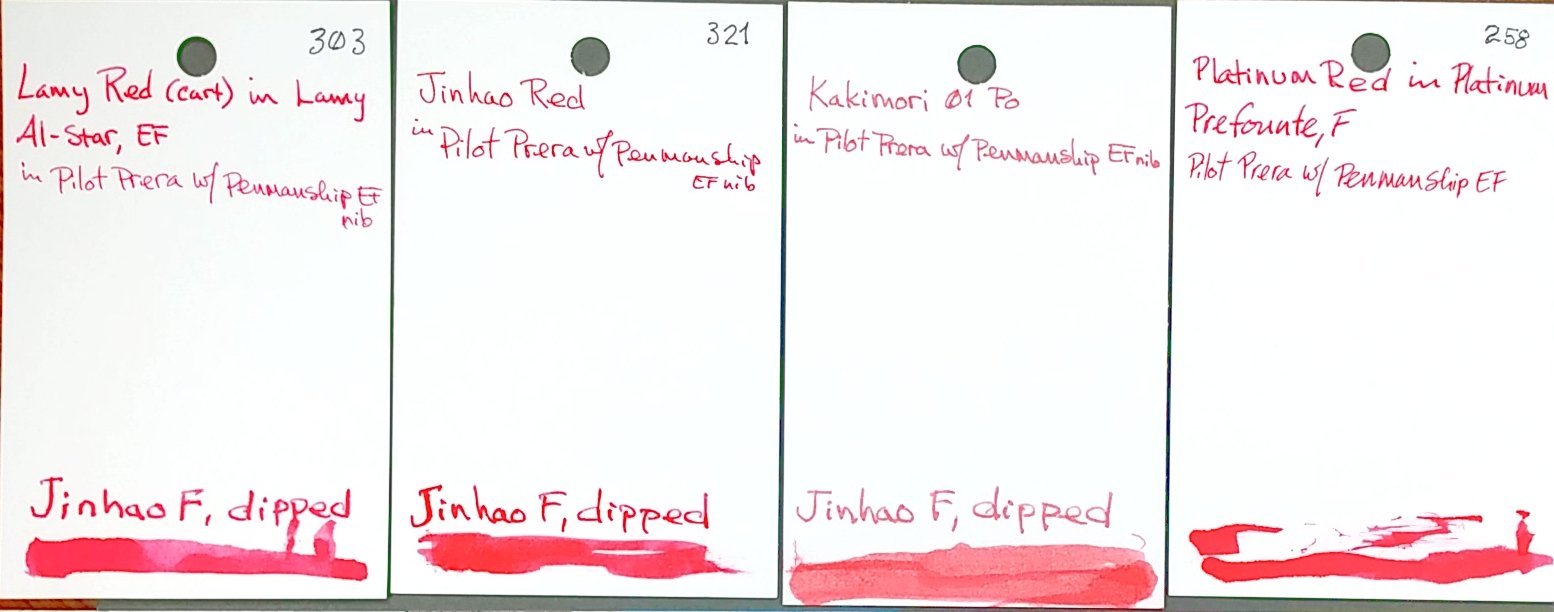 303
Lamy Red (cart) in Lamy
Al-Star, EF
in Pilot Prera w/ Penmanship EF
nib
Jinhao F, dipped
321
Jinhao Red
in Pilot Prera w/ Penmanship
EF nib
Jinhao F, dipped
Kakimori 01 Po
in Pilot Prera w/ Penmanship EF nib
Jinhao F, dipped
258
Platinum Red in Platinum
Prefounte, F
Pilot Prera w/ Penmanship EF